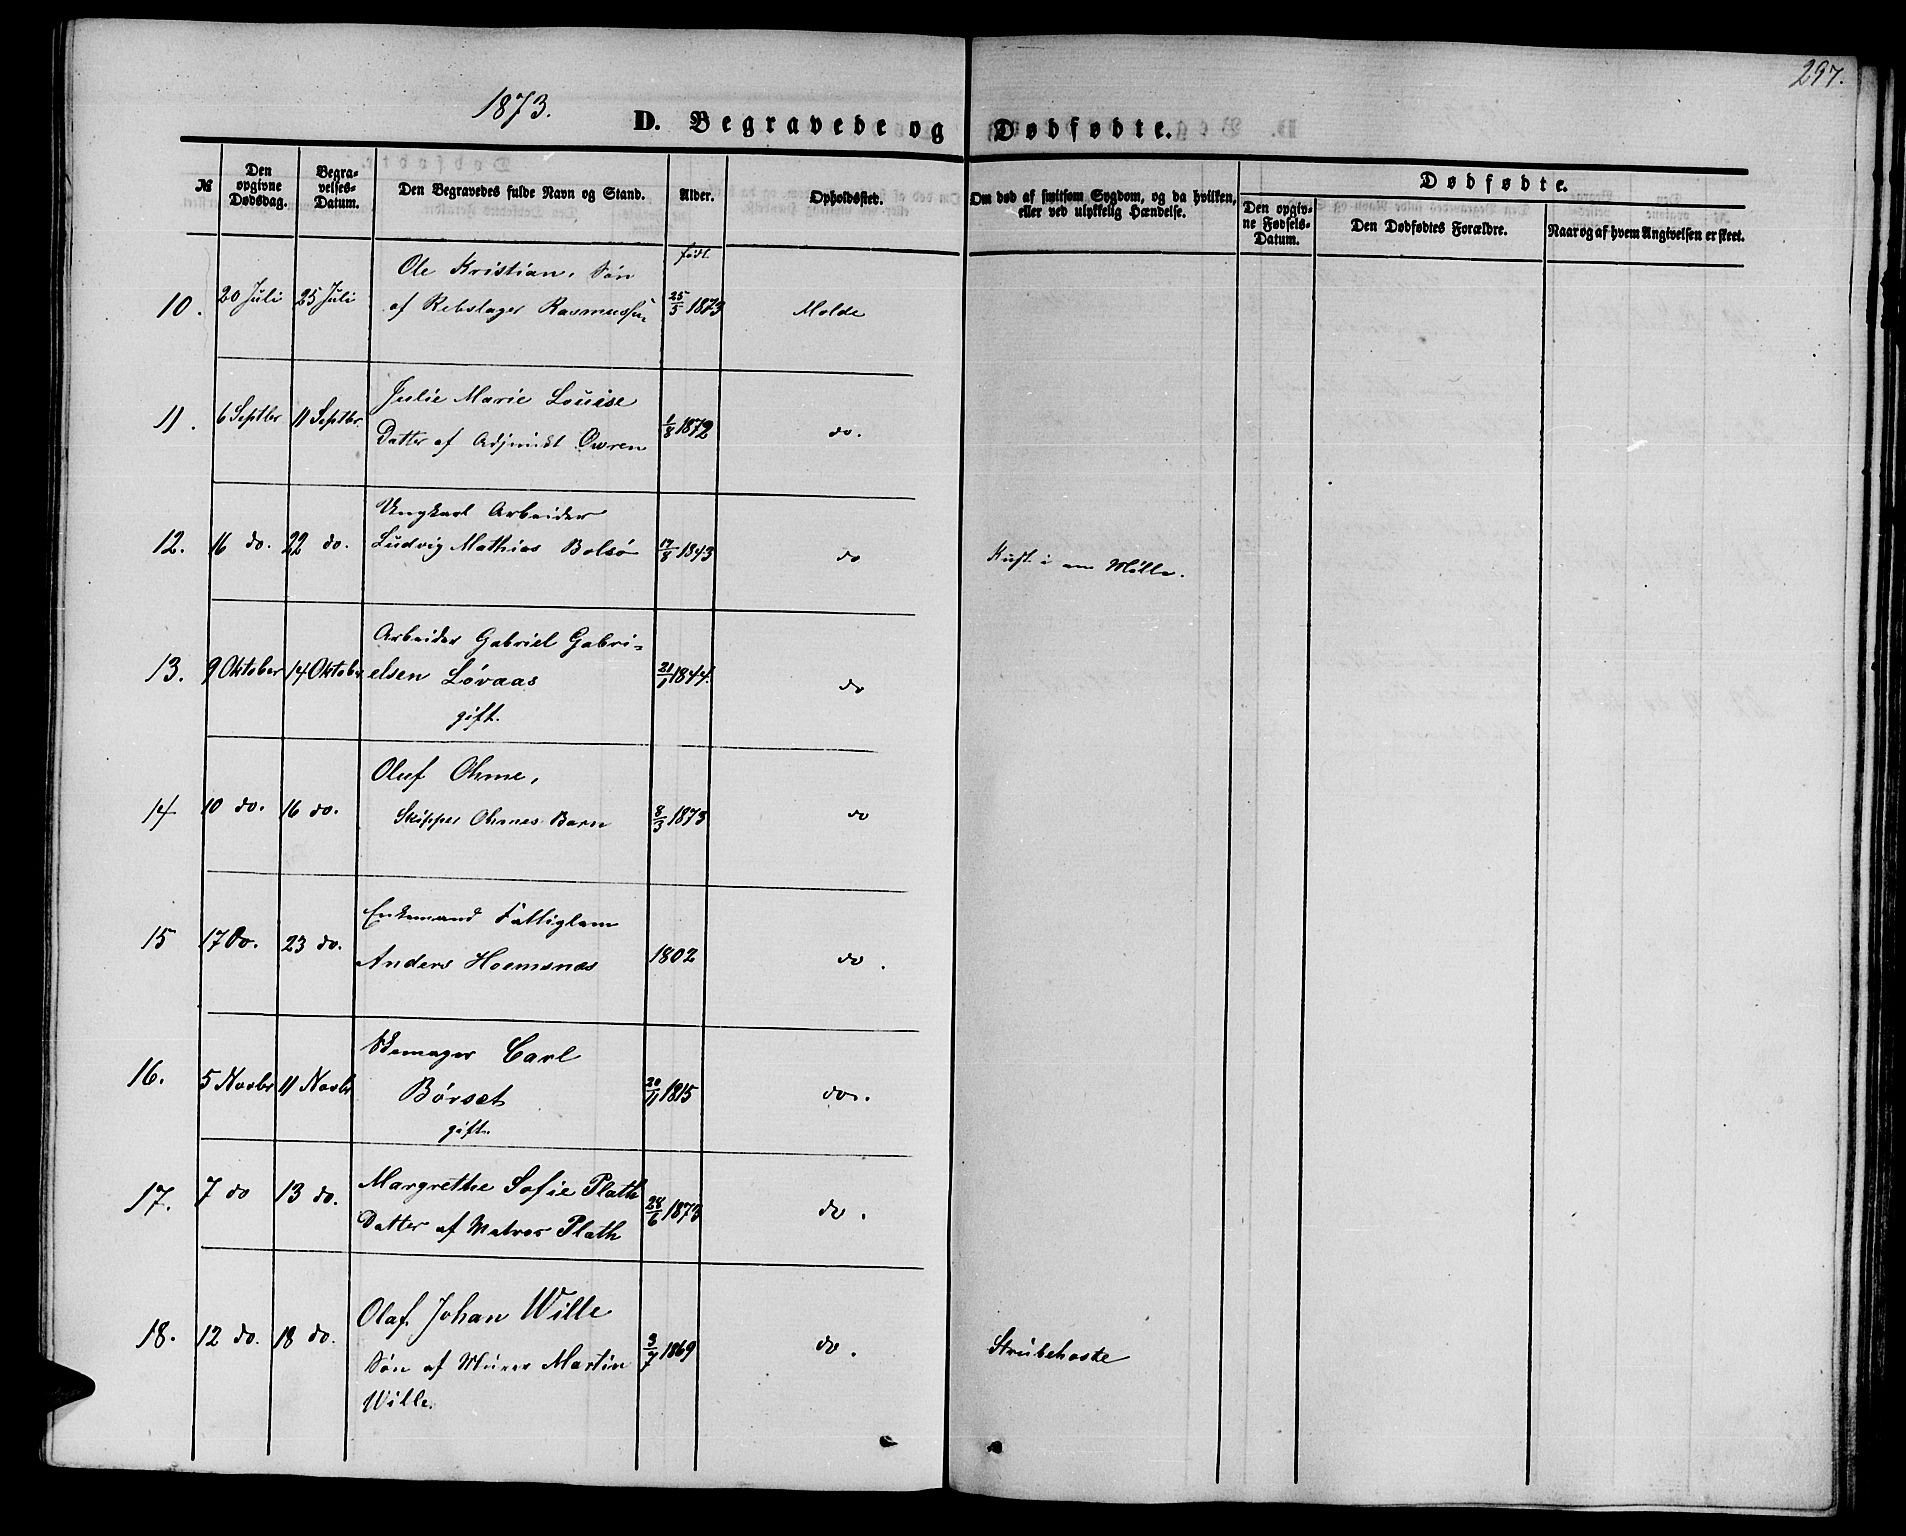 297.
1873.
D. Begravede og Dødfødte.
№
Den opgivne Dødsdag.
Begravelses-Datum.
Den Begravedes fulde Navn og Stand.
Alder.
Opholdssted.
Om død af smitsom Sygdom, og da hvilken, eller ved ulykkelig Hændelse.
Dødfødte.
Den opgivne Fødsels-Datum.
Den Dødfødtes Forældre.
Naar og af hvem Angivelsen er skeet.
født
10. 20 Juli 25 Juli Ole Kristian, Søn
af Rebslager Rasmussen 25/5 1873 Molde
11. 6 Septbr 11 Septbr. Julie Marie Louise
Datter af Adjunkt Owren 1/8 1872 do.
12. 16 do. 22 do. Ungkarl Arbeider
Ludvig Mathias Bolsø 17/8 1843 do
i en Mølle.
13. 9 Oktober 14 Oktober Arbeider Gabriel Gabri-
elsen Løvaas 21/1 1844. do
gift.
14 10 do. 16 do. Oluf Ohme,
Skipper Ohmes Barn 8/3 1873 do
15 17 Do. 23 do. Enkemand Fattiglem
Anders Hoemsnæs 1802 do.
16. 5 Novbr 11 Novbr Skomager Carl
Børset 20/11 1815 do.
gift.
17. 7 do 13 do. Margrethe Sofie Plath
Datter af Matros Plath 28/6 1873 do.
18. 12 do. 18 do. Olaf Johan Wille
Søn af Murer Martin 3/7 1869 do. Strubehoste
Wille.